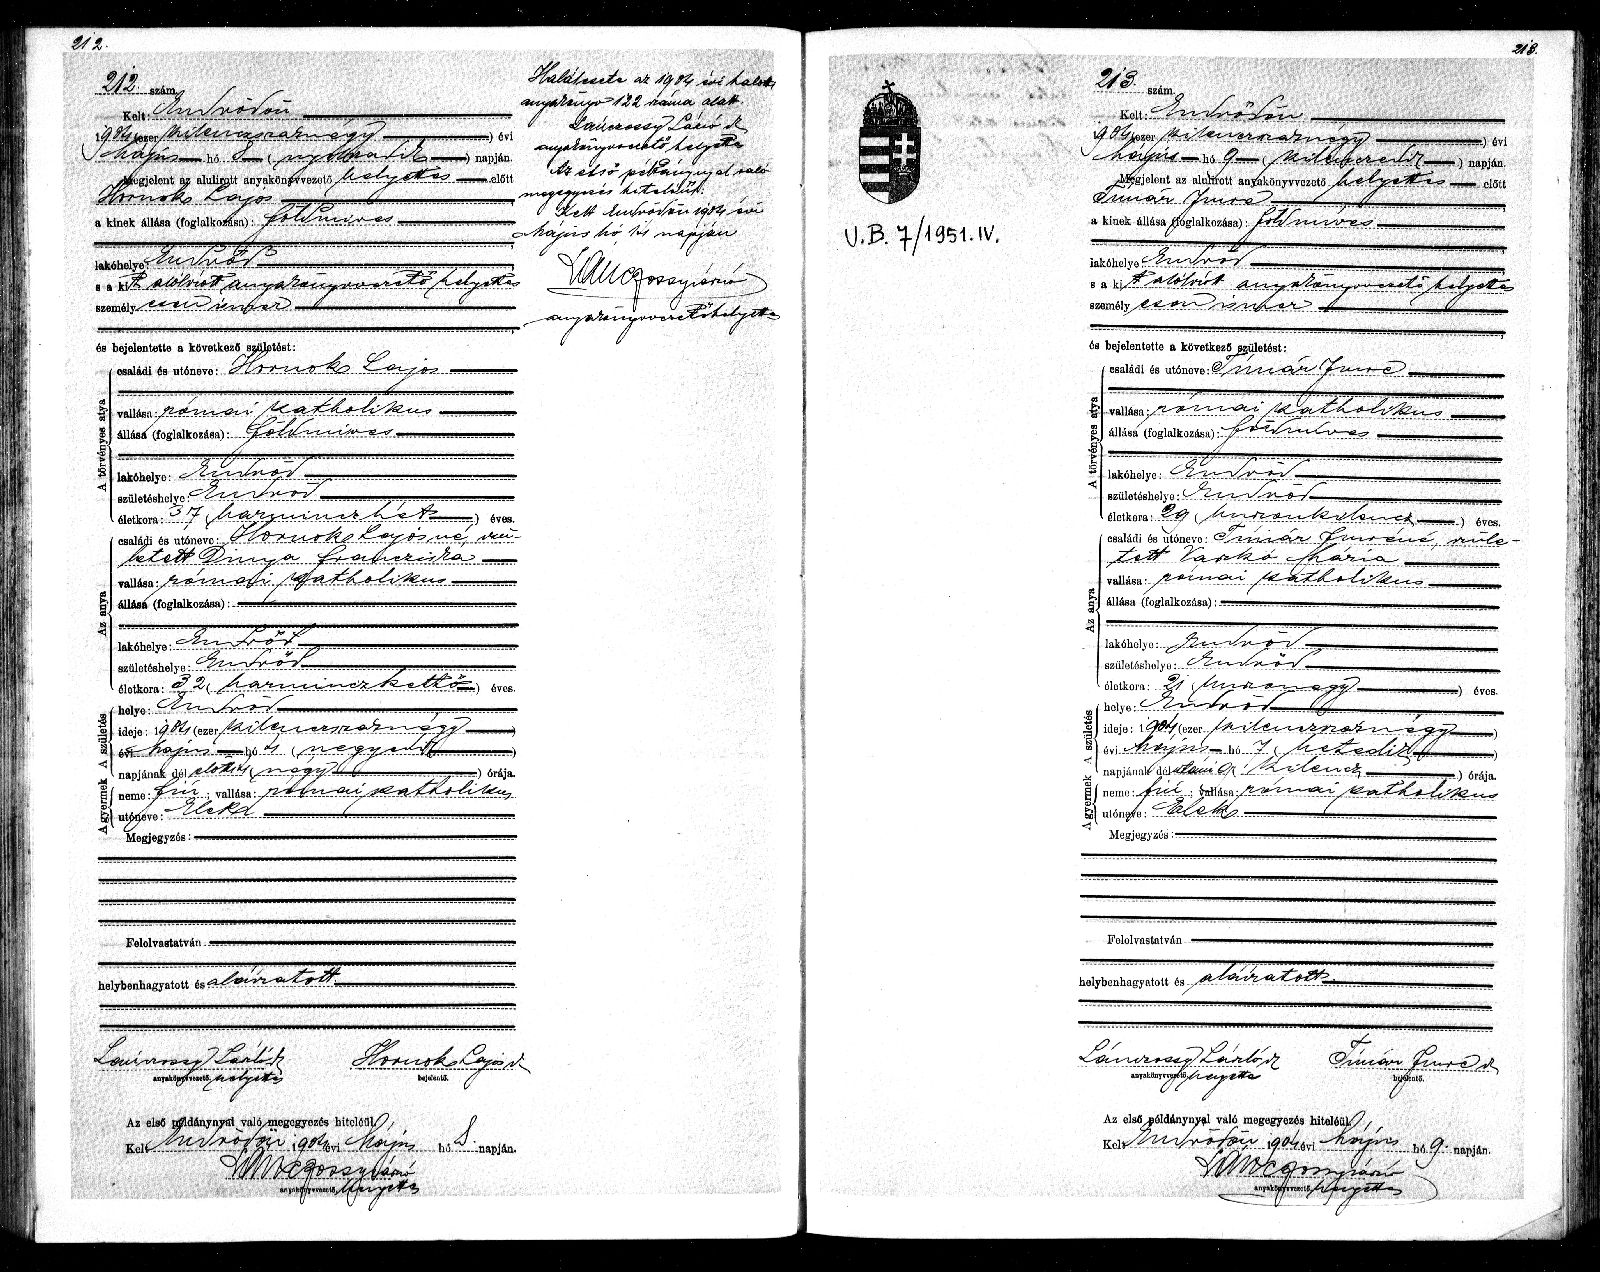 212.
212. szám.
Kelt: Endrődön
1904 (ezer kilenczszáznégy) évi
május hó 8 (nyolczadik) napján.
Megjelent az alulirott anyakönyvvezető helyettes előtt
Hornok Lajos
a kinek állása (foglalkozása): földmives
lakóhelye: Endrőd
s a kit alólirott anyakönyvvezető helyettes
személyesen ismer
és bejelentette a következő születést:
A törvényes atya
családi és utóneve: Hornok Lajos
vallása: római katholikus
állása (foglalkozása): földmives
lakóhelye: Endrőd
születéshelye: Endrőd
életkora: 37 (harminczhét) éves.
Az anya
családi és utóneve: Hornok Lajosné, szü-
letett Dinya Franeziska
vallása: római katholikus
állása (foglalkozása):
lakóhelye: Endrőd
születéshelye: Endrőd
életkora: 32 (harminczkettő) éves.
A születés
helye: Endrőd
ideje: 1904 (ezer kilenczszáznégy)
évi május hó 4 (negyedik)
napjának délelőtti 4 (négy) órája.
A gyermek
neme: fiú; vallása: római katholikus
utóneve: Elek
Megjegyzés:
Felolvastatván
helybenhagyatott és aláiratott
Lánczossy László Hornok Lajos
anyakönyvvezető helyettes bejelentő.
Az első példánynyal való megegyezés hiteléül.
Kelt Endrődön 1904 évi Május hó 8. napján.
Lánczossy László
anyakönyvvezető helyettes
Halálesete az 1904 évi halotti
anyakönyv 122 száma alatt.
Lánczossy László
anyakönyvvezető helyettes
Az első példánynyal való
megegyezés hiteléül.
Kelt Endrődön 1904 évi
május hó napján
Lánczossy László
anyakönyvvezető helyettes
213.
U.B. 7/1951.IV.
213. szám.
Kelt: Endrődön
1904 (ezer kilenczszáznégy) évi
május hó 9 (kilenczedik) napján.
Megjelent az alulirott anyakönyvvezető helyettes előtt
Timár Imre
a kinek állása (foglalkozása): földmives
lakóhelye: Endrőd
s a kit alólirott anyakönyvvezető helyettes
személyesen ismer
és bejelentette a következő születést:
A törvényes atya
családi és utóneve: Timár Imre
vallása: római katholikus
állása (foglalkozása): földmives
lakóhelye: Endrőd
születéshelye: Endrőd
életkora: 29 (huszonkilencz) éves.
Az anya
családi és utóneve: Timár Imréné, szüle-
tett Vaskó Mária
vallása: római katholikus
állása (foglalkozása):
lakóhelye: Endrőd
születéshelye: Endrőd
életkora: 24 (huszonnégy) éves.
A születés
helye: Endrőd
ideje: 1904 (ezer kilenczszáznégy)
évi május hó 7 (hetedik)
napjának délutáni 9 (kilencz) órája.
A gyermek
neme: fiú; vallása: római katholikus
utóneve: Elek
Megjegyzés:
Felolvastatván
helybenhagyatott és aláiratott
Lánczossy László Timár Imre
anyakönyvvezető helyettes bejelentő.
Az első példánynyal való megegyezés hiteléül.
Kelt Endrődön 1904 évi május hó 9. napján.
Lánczossy László
anyakönyvvezető helyettes